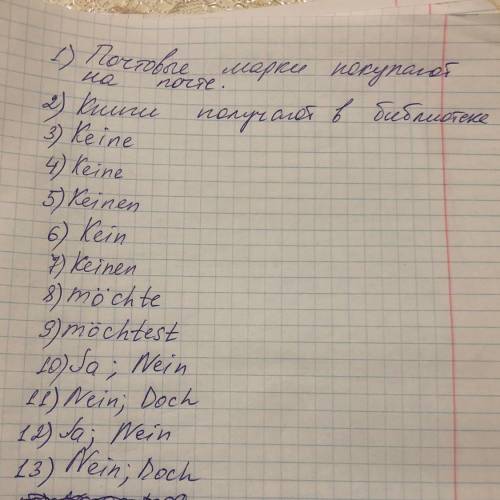 1) Почтовые марки покупают
на почте.
2) Книги получают в библиотеке
3) Keine
4) Keine
5) Keinen
6) Kein
7) Keinen
8) möchte
9) möchtest
10) Ja; Nein
11) Nein; Doch
12) Ja; Nein
13) Nein; Doch